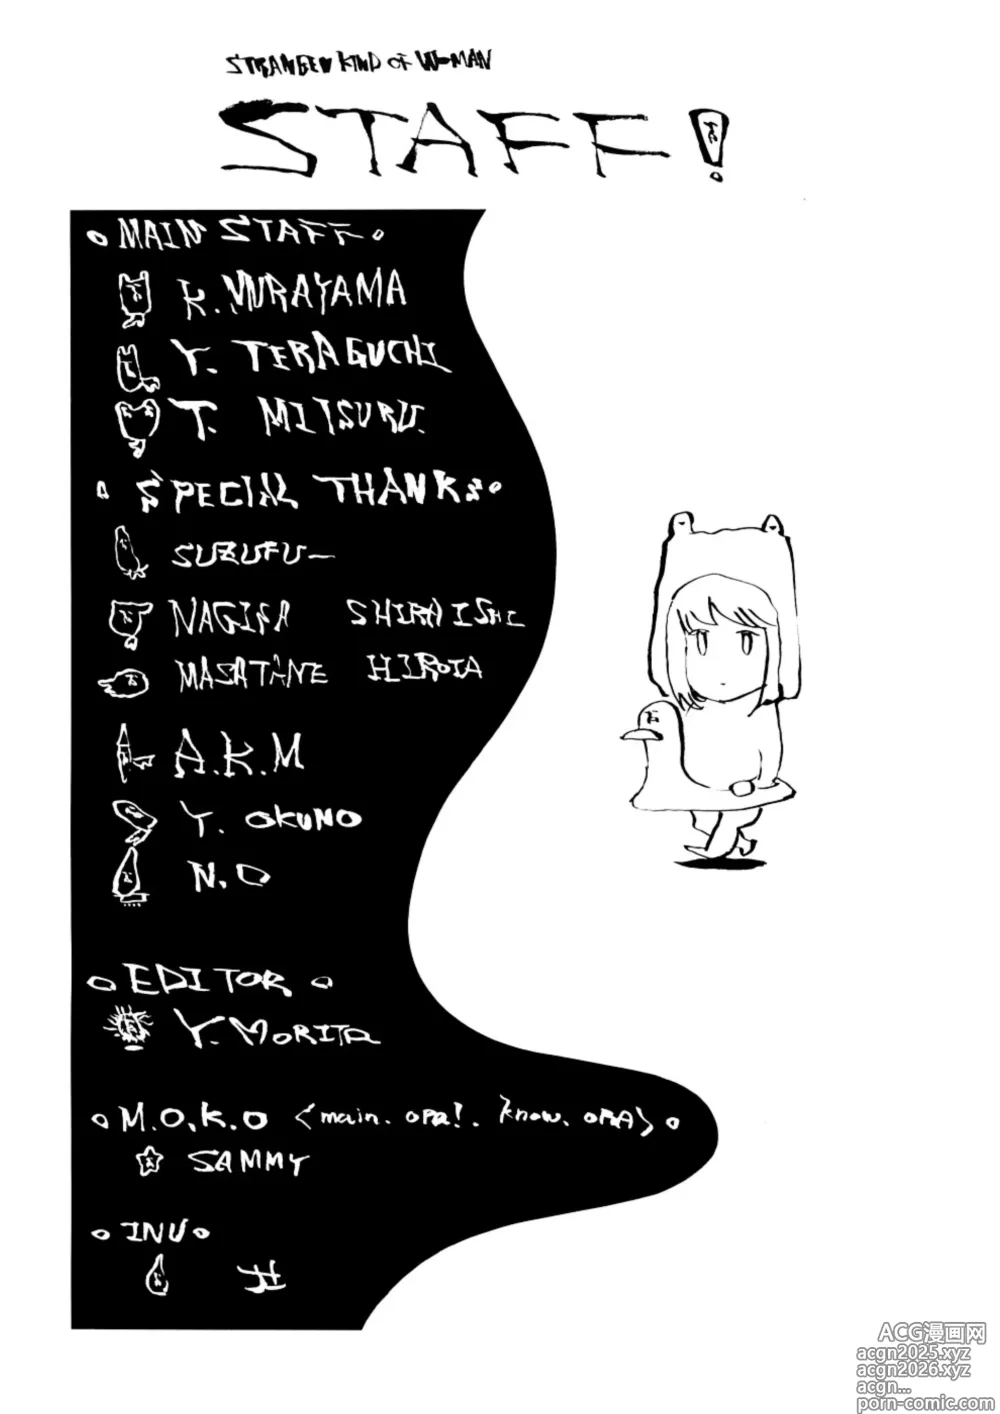 STRANGE KIND OF WOMAN
STAFF!
MAIN STAFF
K. MURAYAMA
Y. TERAGUCHI
T. MITSURU.
SPECIAL THANKS
SUZUFU—
NAGISA SHIRAISHI
MASATANE HIROTA
A.K.M
Y. OKUNO
N.O
EDITOR
Y. MORITA
M.O.K.O <main. OPA!. know. OPA>
SAMMY
INU
ACG漫画网
acgn2025.xyz
acgn2026.xyz
acgn...
porn-comic.com